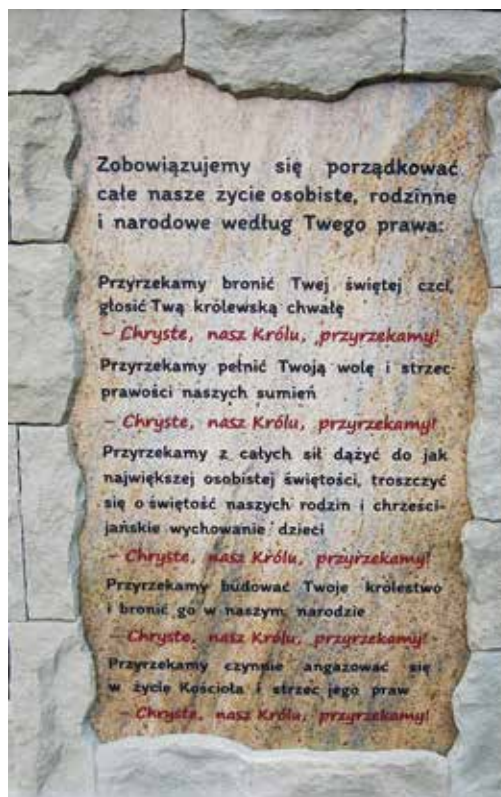 Zobowiązujemy się porządkować
całe nasze życie osobiste, rodzinne
i narodowe według Twego prawa:
Przyrzekamy bronić Twej świętej czci,
głosić Twą królewską chwałę
– Chryste, nasz Królu, przyrzekamy!
Przyrzekamy pełnić Twoją wolę i strzec
prawości naszych sumień
– Chryste, nasz Królu, przyrzekamy!
Przyrzekamy z całych sił dążyć do jak
największej osobistej świętości, troszczyć
się o świętość naszych rodzin i chrześci-
jańskie wychowanie dzieci
– Chryste, nasz Królu, przyrzekamy!
Przyrzekamy budować Twoje królestwo
i bronić go w naszym narodzie
– Chryste, nasz Królu, przyrzekamy!
Przyrzekamy czynnie angażować się
w życie Kościoła i strzec jego praw
– Chryste, nasz Królu, przyrzekamy!